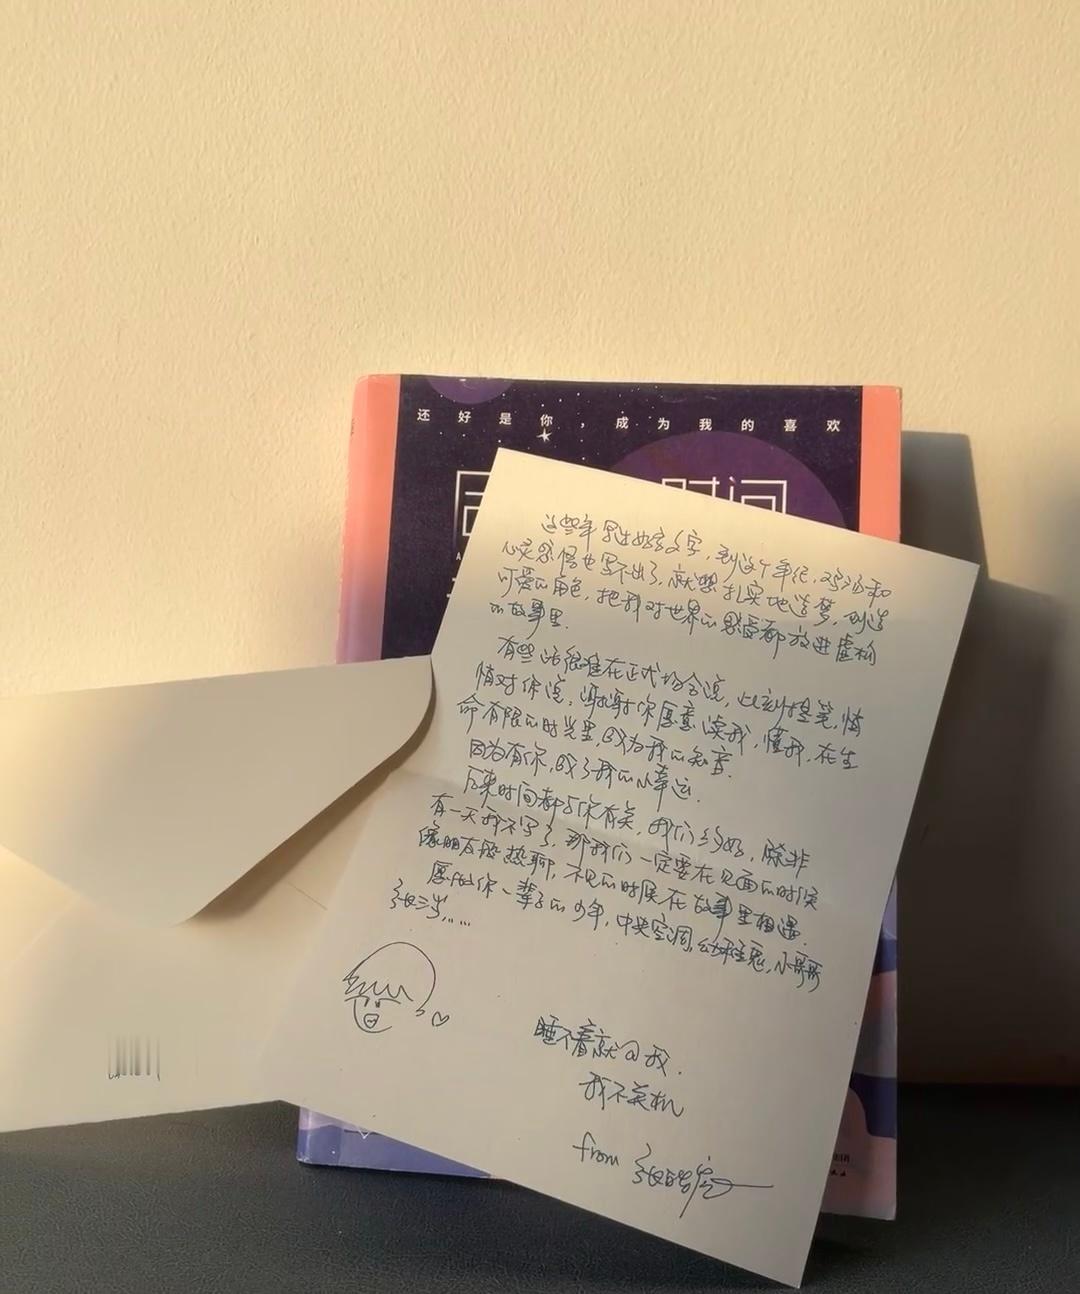 还好是你，成为我的喜欢
时间
这些年写过好多文字，到这个年纪，鸡汤和
心灵感悟也写不出了，就想扎实地造梦，创造
可爱的角色，把我对世界的感受都放进虚构
的故事里.
有些话很难在正式场合说，此刻提笔，悄
悄对你说：谢谢你愿意读我，懂我，在生
命有限的时光里，成为我的知音.
因为有你，成了我的小幸运.
后来时间都与你有关，我们约好，除非
有一天我不写了，那我们一定要在见面的时候
像朋友般热聊，不见的时候在故事里相遇.
愿做你一辈子的少年，中央空调，幼稚鬼，小哥哥
张三岁……
睡不着就@我.
我不关机
from 张皓宸